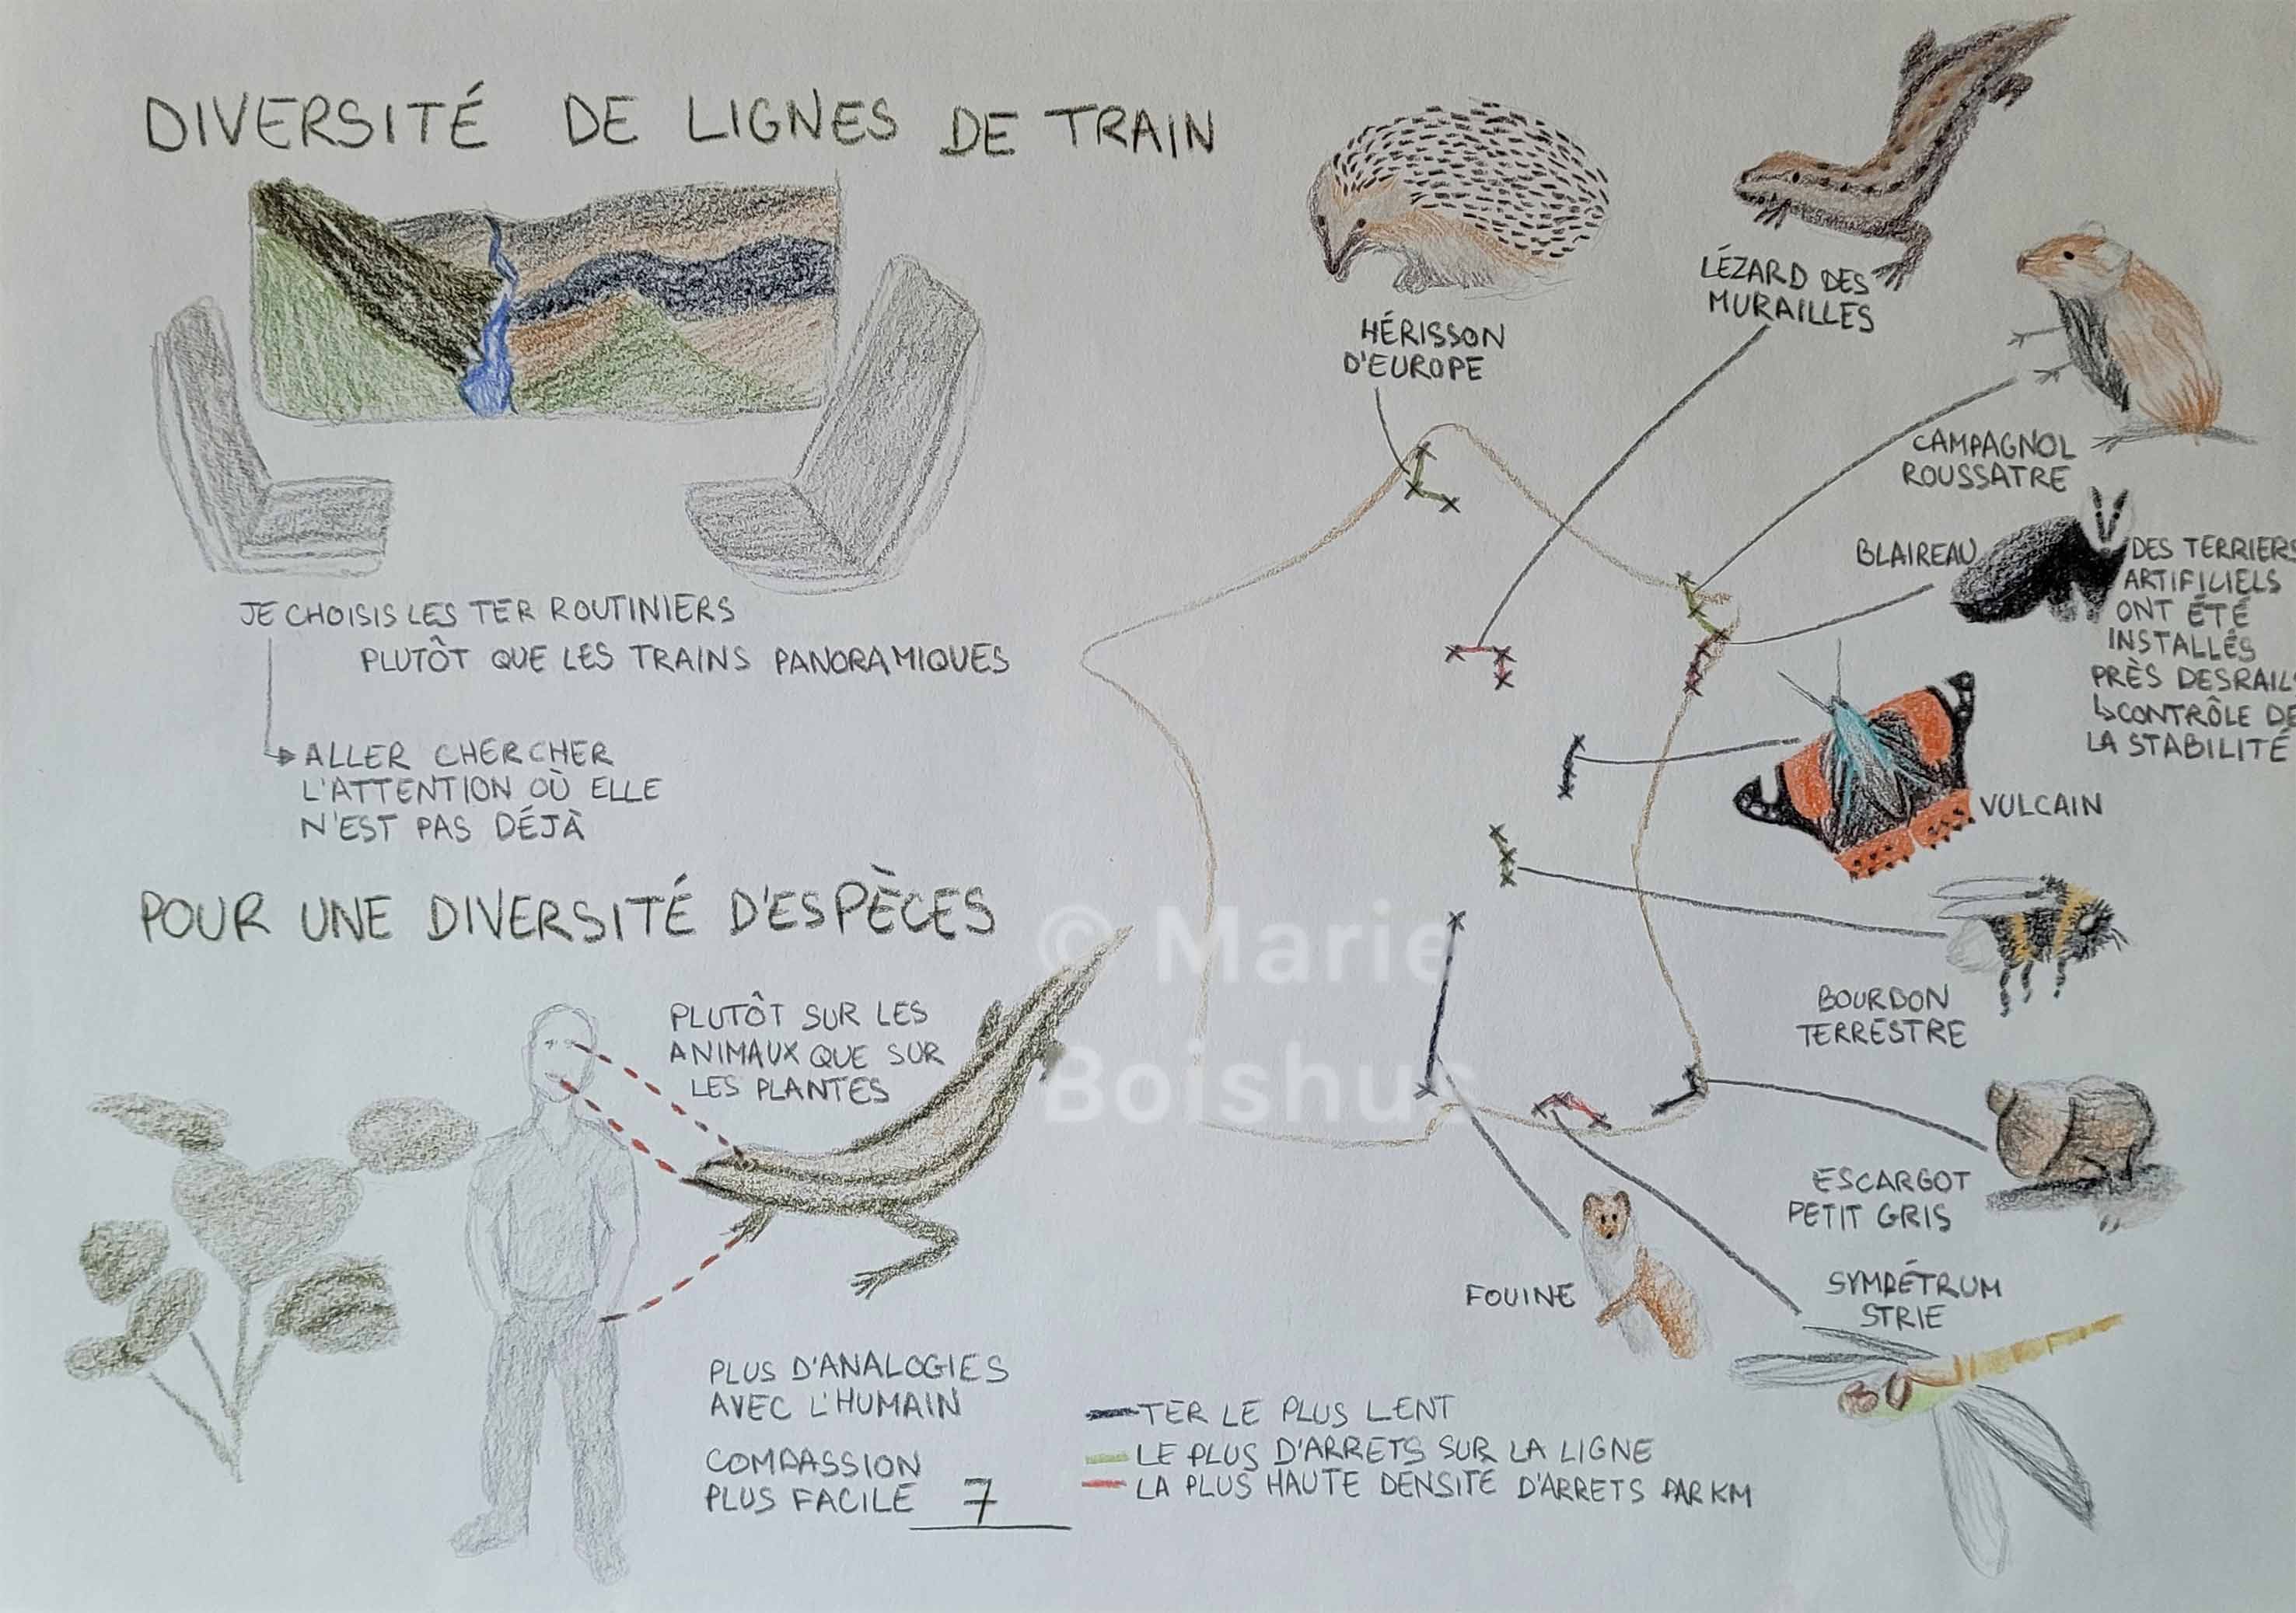 DIVERSITÉ DE LIGNES DE TRAIN
JE CHOISIS LES TER ROUTINIERS
PLUTÔT QUE LES TRAINS PANORAMIQUES
ALLER CHERCHER
L'ATTENTION OÙ ELLE
N'EST PAS DÉJÀ
POUR UNE DIVERSITÉ D'ESPÈCES
PLUTÔT SUR LES
ANIMAUX QUE SUR
LES PLANTES
PLUS D'ANALOGIES
AVEC L'HUMAIN
COMPASSION
PLUS FACILE
7
HÉRISSON
D'EUROPE
LÉZARD DES
MURAILLES
CAMPAGNOL
ROUSSATRE
BLAIREAU
DES TERRIERS
ARTIFILIELS
ONT ÉTÉ
INSTALLÉS
PRÈS DES RAILS
CONTRÔLE DE
LA STABILITÉ
VULCAIN
BOURDON
TERRESTRE
ESCARGOT
PETIT GRIS
FOUINE
SYMPÉTRUM
STRIE
TER LE PLUS LENT
LE PLUS D'ARRETS SUR LA LIGNE
LA PLUS HAUTE DENSITÉ D'ARRETS PAR KM
© Marie
Boishus